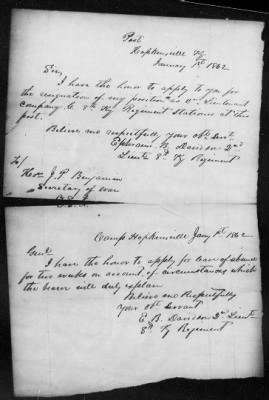 Post
Hopkinsville Ky
January 1st 1862
Sir,
I have the honor to apply to you for
the resignation of my position as 2nd Lieutenant
Company C. 8th Ky Regiment Stationed at this
post.
Believe me respectfully, your Obt Servt
Ephraim B. Davison 2nd
Lieut 8th Ky Regiment
To
Hon. J. P. Benjamin
Secretary of War
C.S.A.
Camp Hopkinsville Jany 1st 1862
Genl
I have the honor to apply for leave of absence
for two weeks on account of circumstances which
the bearer will duly explain
Believe me Respectfully
Your Obt Servant
E. B. Davison 2nd Lieut
8th Ky Regiment